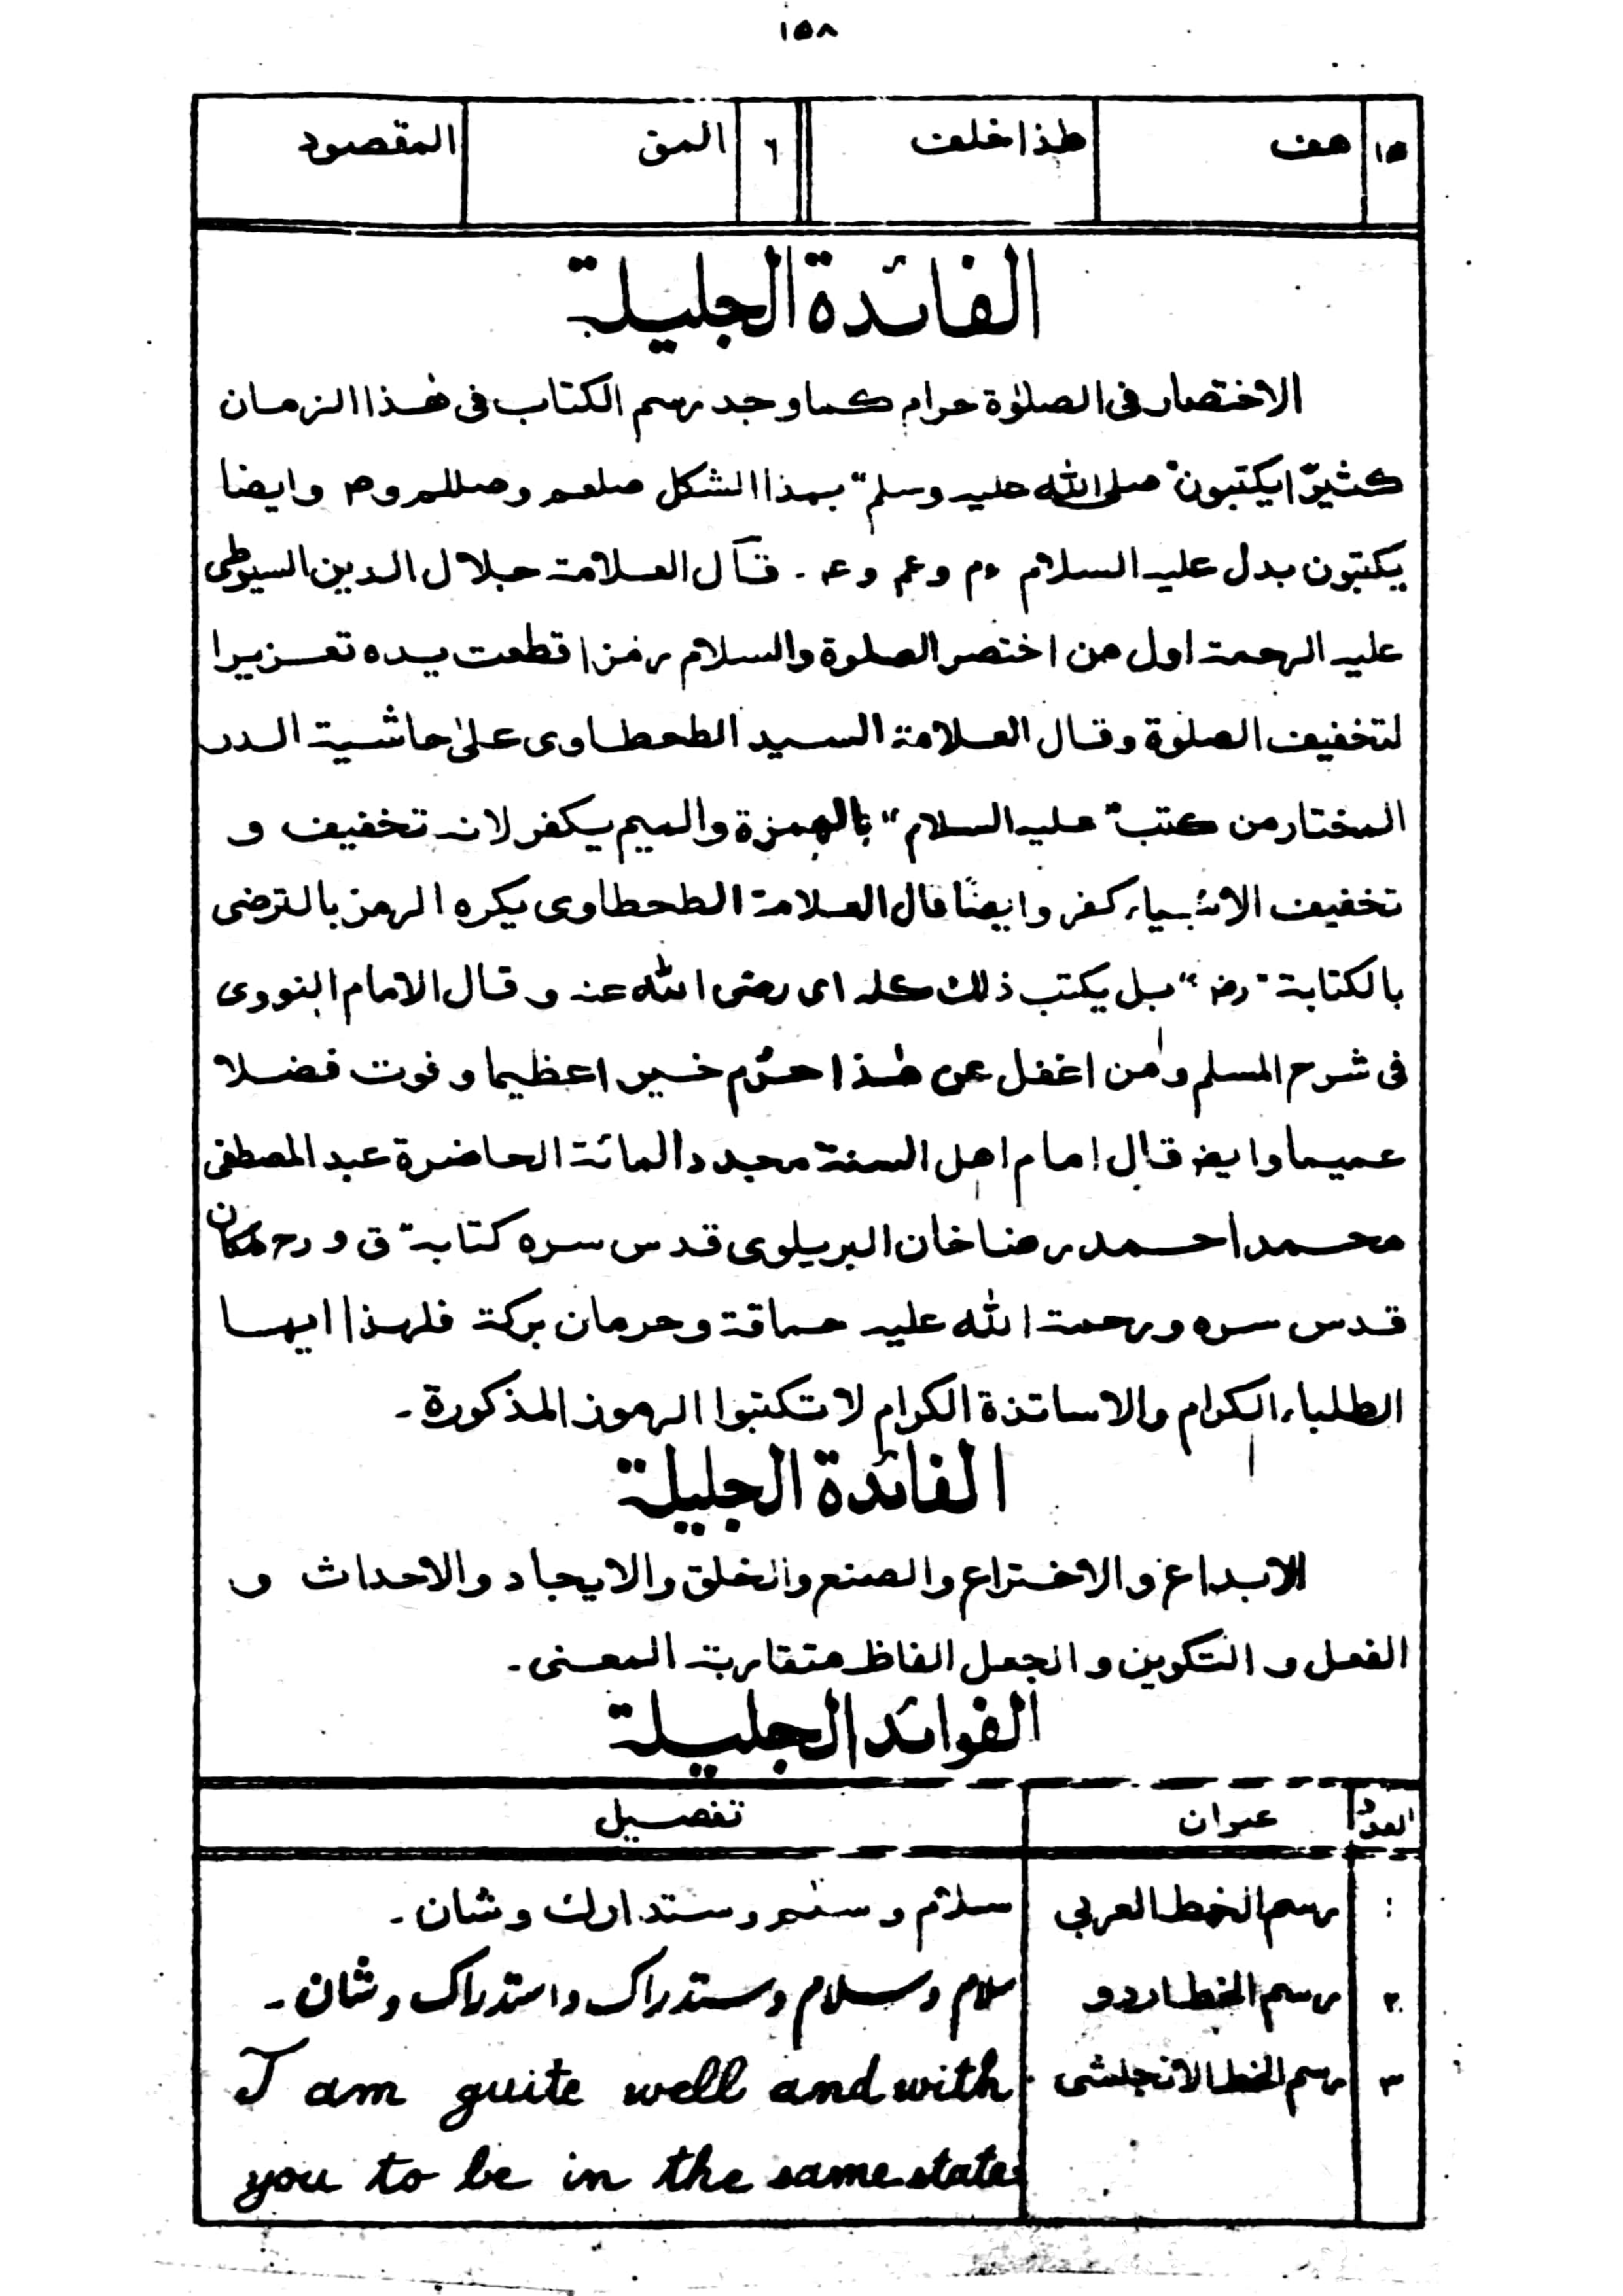 ١٥٨
١٥ هف هذا خلف ٦ المق المقصود
الفائدة الجليلة
الاختصار فى الصلوٰة حرام كما وجد رسم الكتاب فى هٰذا الزمان
كثيرًا يكتبون "صلى الله عليه وسلم" بهذا الشكل صلعم وصللم وص وايضا
يكتبون بدل عليه السلام ءم وعم وعه ـ قال العلامة جلال الدين السيوطى
عليه الرحمة اول من اختصر الصلوة والسلام رمزا قطعت يده تعزيرا
لتخفيف الصلوة وقال العلامة السيد الطحطاوى علىٰ حاشية الدر
المختار من كتب "عليه السلام" بالهمزة والميم يكفر لانه تخفيف و
تخفيف الانبياء كفر وايضًا قال العلامة الطحطاوى يكره الرمز بالترضى
بالكتابة "رضـ" بل يكتب ذلك كله اى رضى الله عنه و قال الامام النووى
فى شرح المسلم ومن اغفل عن هٰذا حرّم خيرا عظيما و فوت فضلا
عميما وايضـ قال امام اهل السنة مجدد المائة الحاضرة عبد المصطفى
محمد احمد رضا خان البريلوى قدس سره كتابة ق و رح مكان
قدس سره ورحمة الله عليه حماقة وحرمان بركة فلهذا ايها
الطلباء الكرام والاساتذة الكرام لا تكتبوا الرموز المذكورة ـ
الفائدة الجليلة
الابداع والاختراع والصنع والخلق والايجاد والاحداث و
الفعل و التكوين و الجعل الفاظ متقاربة المعنى ـ
الفوائد الجليلة
العدد عنوان تفصيل
١ رسم الخط العربي سلام و وستدارك وشان ـ
٢ رسم الخط اردو سلام وسلام وستدراك واستدراك وشان ـ
٣ رسم الخط الانجلشى I am guite well and with
you to be in the same state